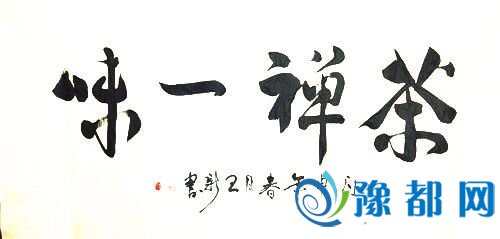 茶禅一味
年春月王
豫都网